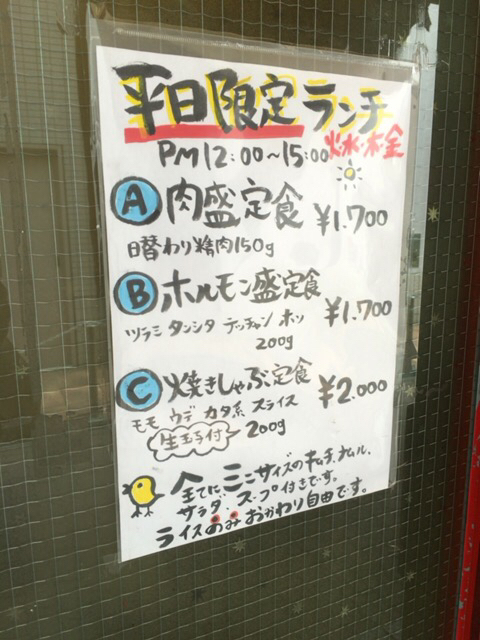 平日限定ランチ
PM12:00~15:00 火・水・木・金
A 肉盛定食 ¥1.700
日替わり精肉150g
B ホルモン盛定食 ¥1.700
ツラミ タンシタ テッチャン ホッ
200g
C 焼きしゃぶ定食 ¥2.000
モモ ウデ カタ系 スライス
生玉子付 200g
全てに、ミニサイズのキムチ、ナムル、
サラダ、スープ付きです。
ライスのみおかわり自由です。